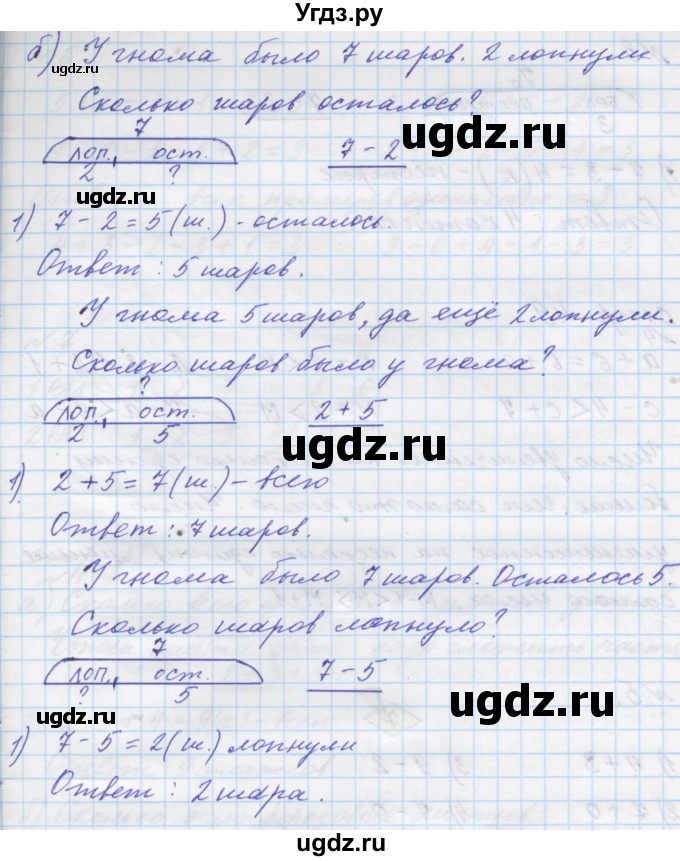 Угдз.ру
б) У гнома было 7 шаров. 2 лопнули
Сколько шаров осталось?
7
лоп. ост. 7 - 2
2 ?
1) 7 - 2 = 5 (ш.) - осталось.
Ответ: 5 шаров.
У гнома 5 шаров, да ещё 2 лопнули.
Сколько шаров было у гнома?
?
лоп. ост. 2 + 5
2 5
1) 2 + 5 = 7 (ш.) - всего
Ответ: 7 шаров.
У гнома было 7 шаров. Осталось 5.
Сколько шаров лопнуло?
7
лоп. ост. 7 - 5
? 5
1) 7 - 5 = 2 (ш.) лопнули
Ответ: 2 шара.
ugdz.ru
ugdz.ru
ugdz.ru
ugdz.ru
ugdz.ru
ugdz.ru
ugdz.ru
ugdz.ru
ugdz.ru